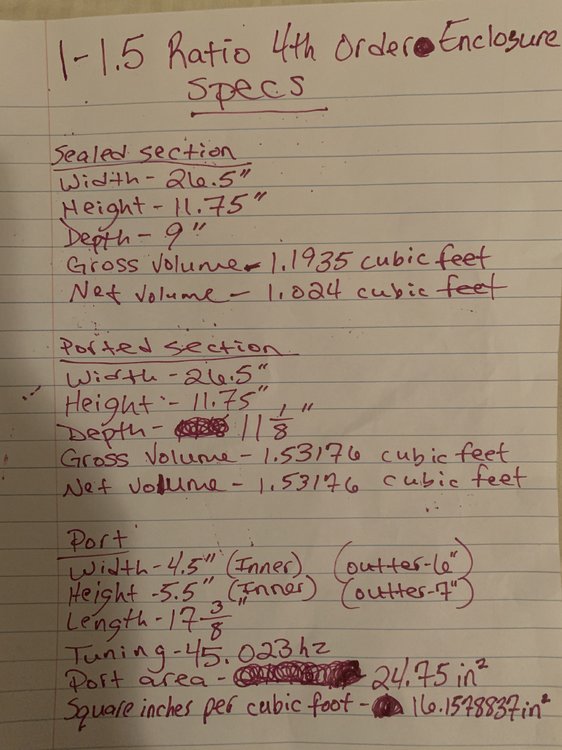 1-1.5 Ratio 4th Order Enclosure
Specs
Sealed section
Width - 26.5"
Height - 11.75"
Depth - 9"
Gross Volume - 1.1935 cubic feet
Net Volume - 1.024 cubic feet
Ported section
Width - 26.5"
Height - 11.75"
Depth - 11 1/8"
Gross Volume - 1.53176 cubic feet
Net Volume - 1.53176 cubic feet
Port
Width - 4.5" (Inner) (outter-6")
Height - 5.5" (Inner) (outter-7")
Length - 17 3/8"
Tuning - 45.023hz
Port area - 24.75 in²
Square inches per cubic foot - 16.1578837in²